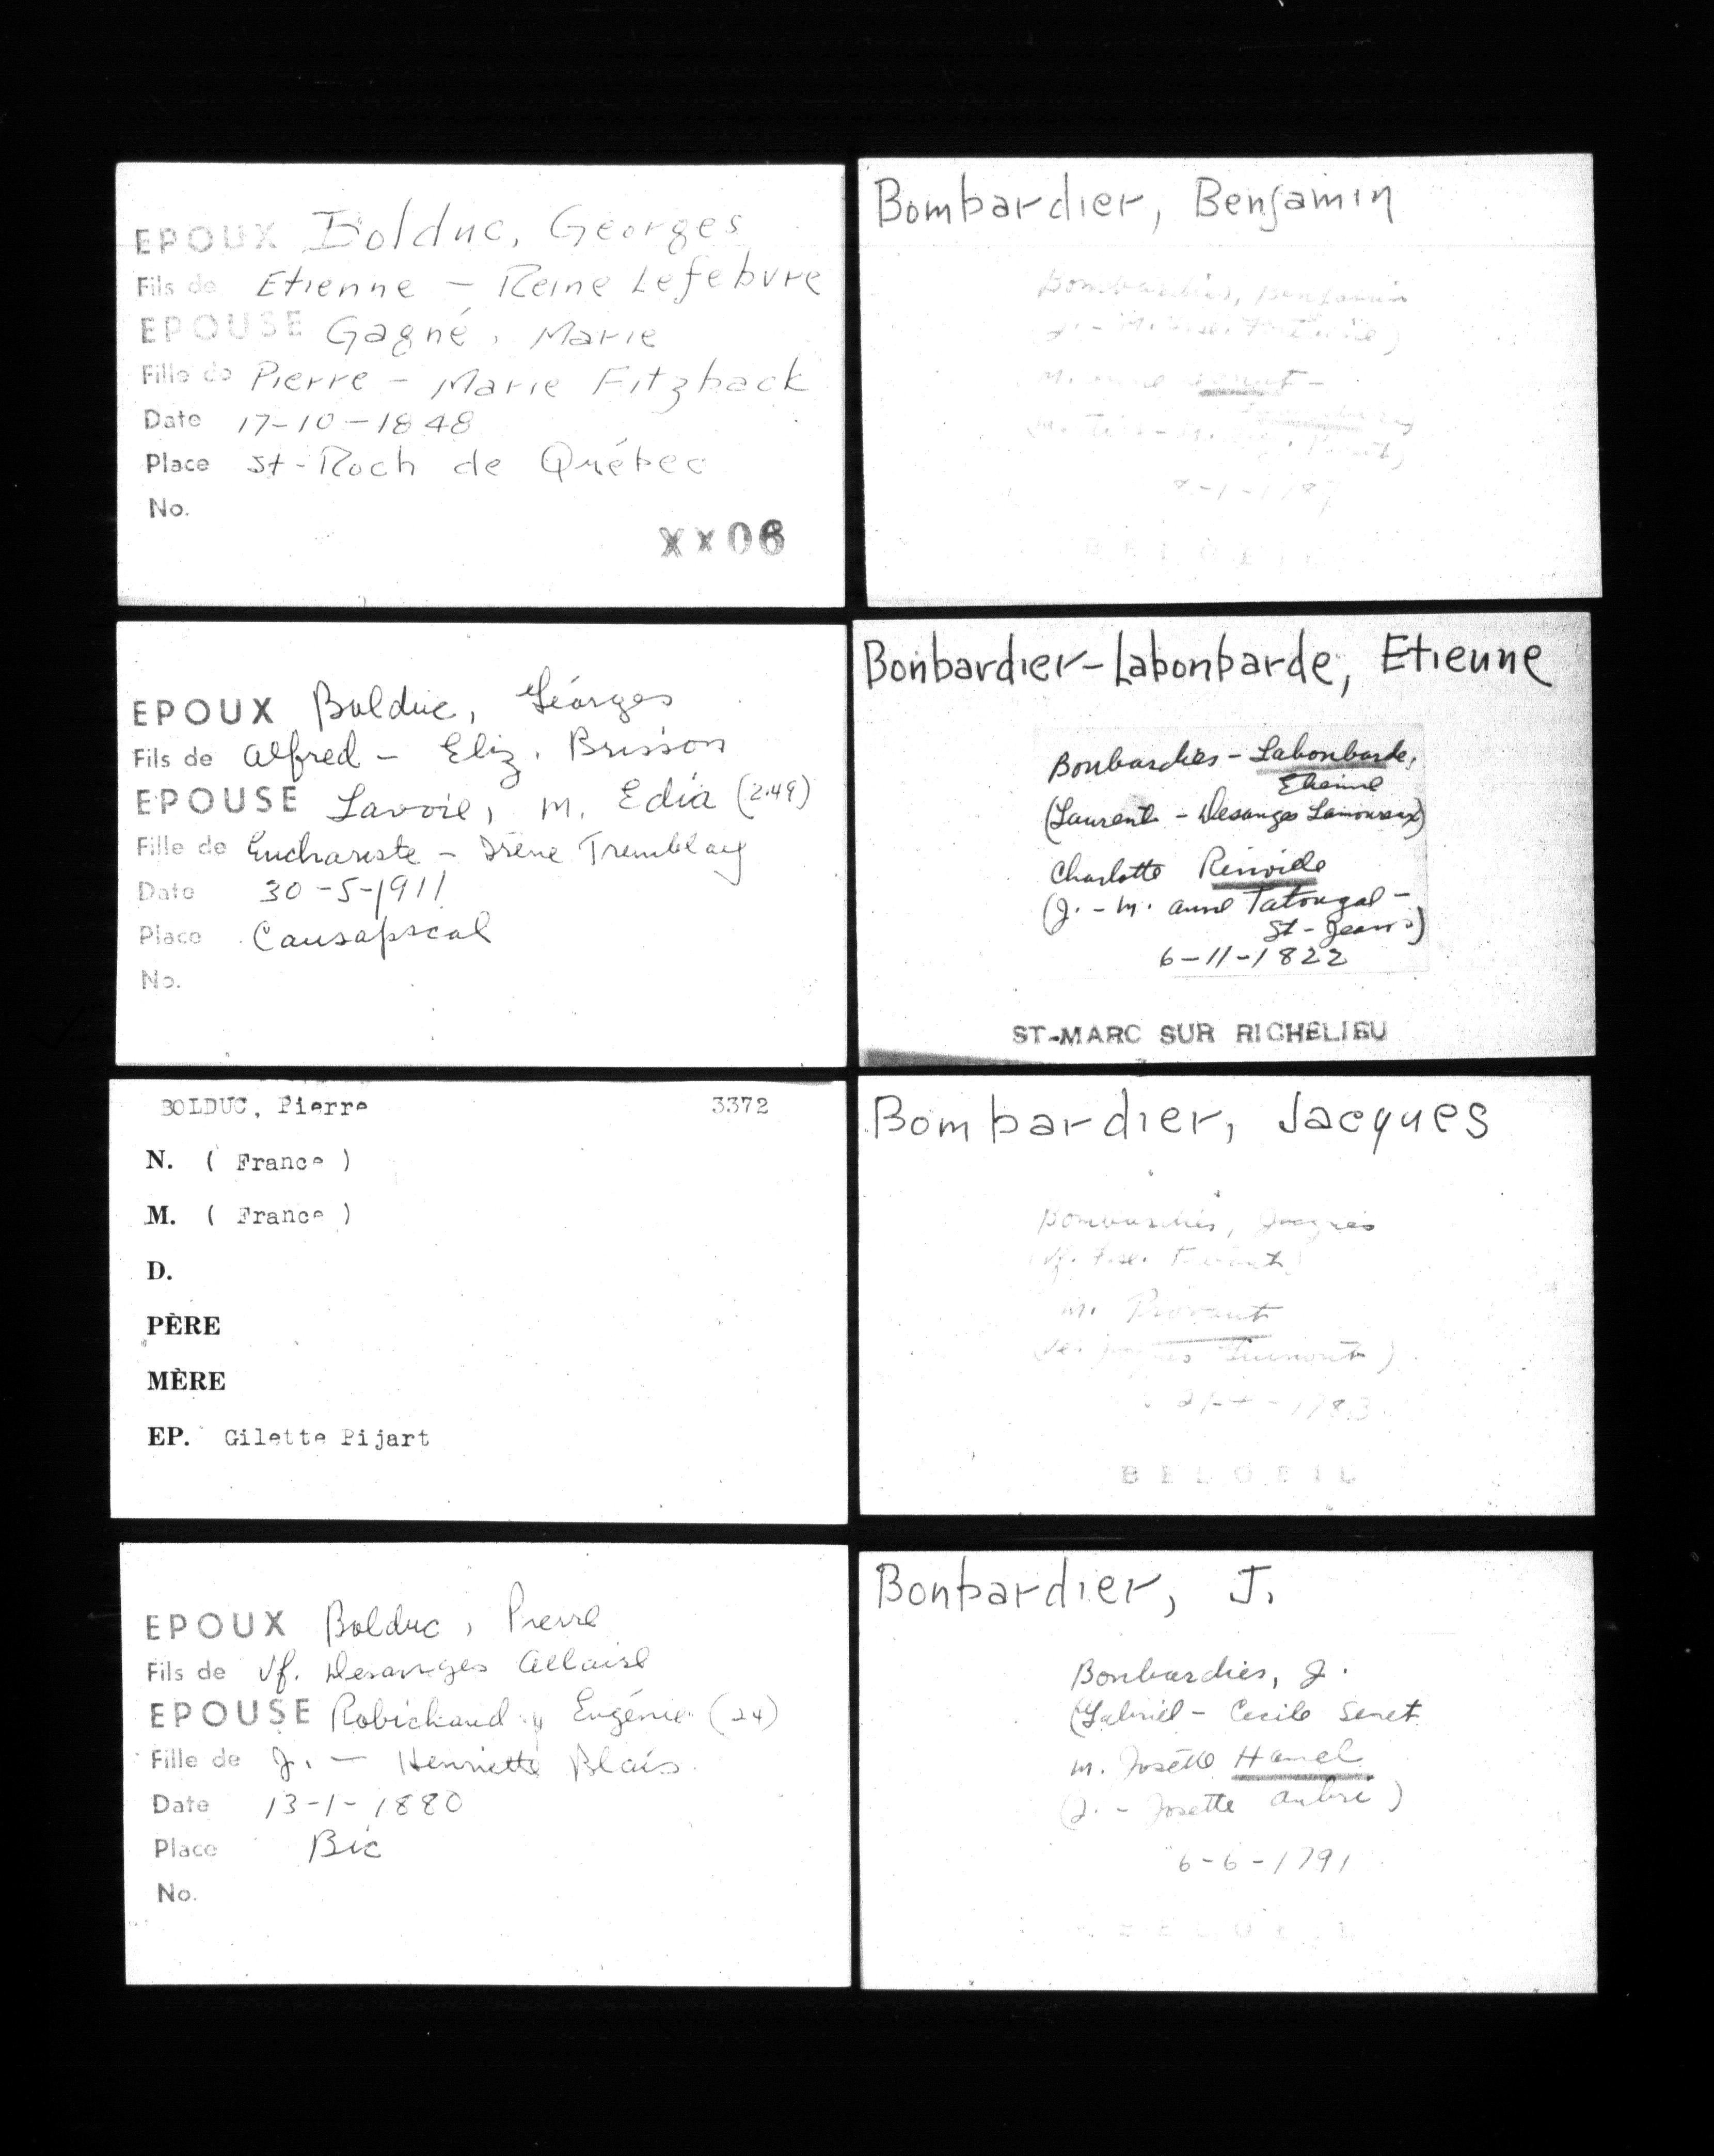 EPOUX Bolduc, Georges
Fils de Etienne - Reine Lefebvre
EPOUSE Gagné, Marie
Fille de Pierre - Marie Fitzback
Date 17-10-1848
Place St-Roch de Québec
No.
xx06
EPOUX Bolduc, Georges
Fils de Alfred - Eliz. Brisson
EPOUSE Lavoie, M. Edia (2.49)
Fille de Euchariste - Irène Tremblay
Date 30-5-1911
Place Causapscal
No.
BOLDUC, Pierre 3372
N. ( France )
M. ( France )
D.
PÈRE
MÈRE
EP. Gilette Pijart
EPOUX Bolduc, Pierre
Fils de Vf. Desanges Allaire
EPOUSE Robichaud, Eugénie (24)
Fille de J. - Henriette Blais
Date 13-1-1880
Place Bic
No.
Bombardier, Benjamin
Bombardier, Benjamin
BELOEIL
Bonbardier-Labonbarde, Etienne
Bonbardier - Labonbarde,
Etienne
(Laurent - Desanges Lamoureux)
Charlotte Renville
(J. - M. Anne Tatougal -
St-Jean)
6-11-1822
ST-MARC SUR RICHELIEU
Bombardier, Jacques
Bombardier, Jacques
M. Provaut
1783
BELOEIL
Bonbardier, J.
Bonbardier, J.
(Gabriel - Cecile Senet
M. Josette Hamel
(J. - Josette Aubri)
6-6-1791
BELOEIL